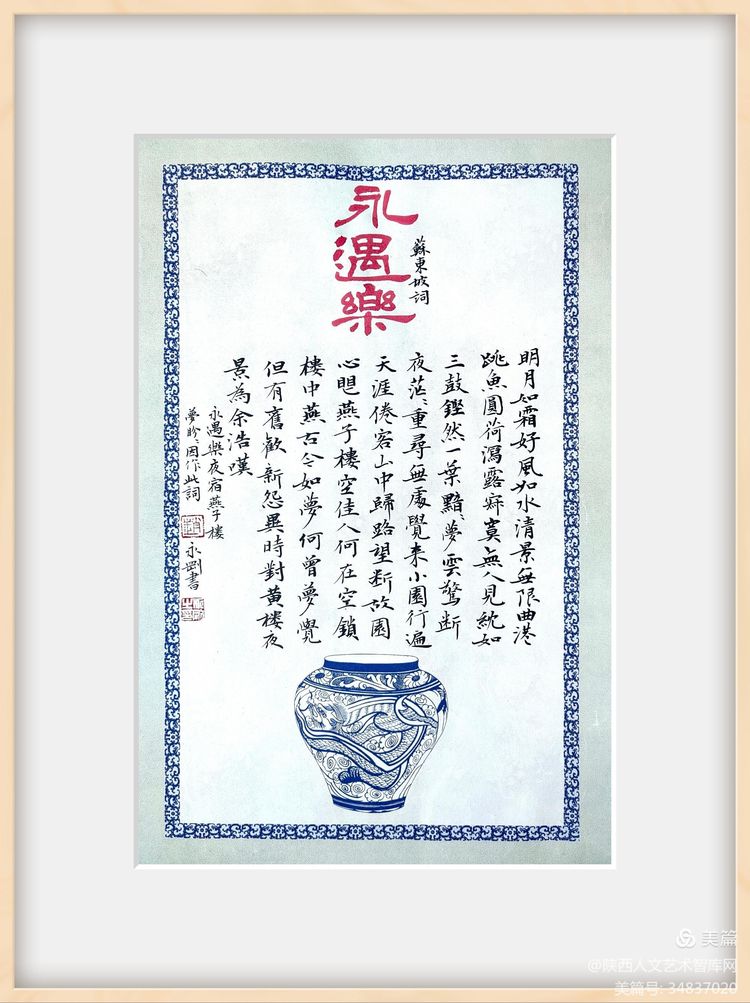 永遇樂
蘇東坡詞
明月如霜好風如水清景無限曲港
跳魚圓荷瀉露寂寞無人見紞如
三鼓鏗然一葉黯、夢雲驚斷
夜茫、重尋無處覺來小園行遍
天涯倦客山中歸路望斷故園
心眼燕子樓空佳人何在空鎖
樓中燕古今如夢何曾夢覺
但有舊歡新怨異時對黃樓夜
景為余浩嘆
永遇樂夜宿燕子樓
夢盼、因作此詞
永剛書
美篇
@陕西人文艺术智库网
美篇号: 34837020